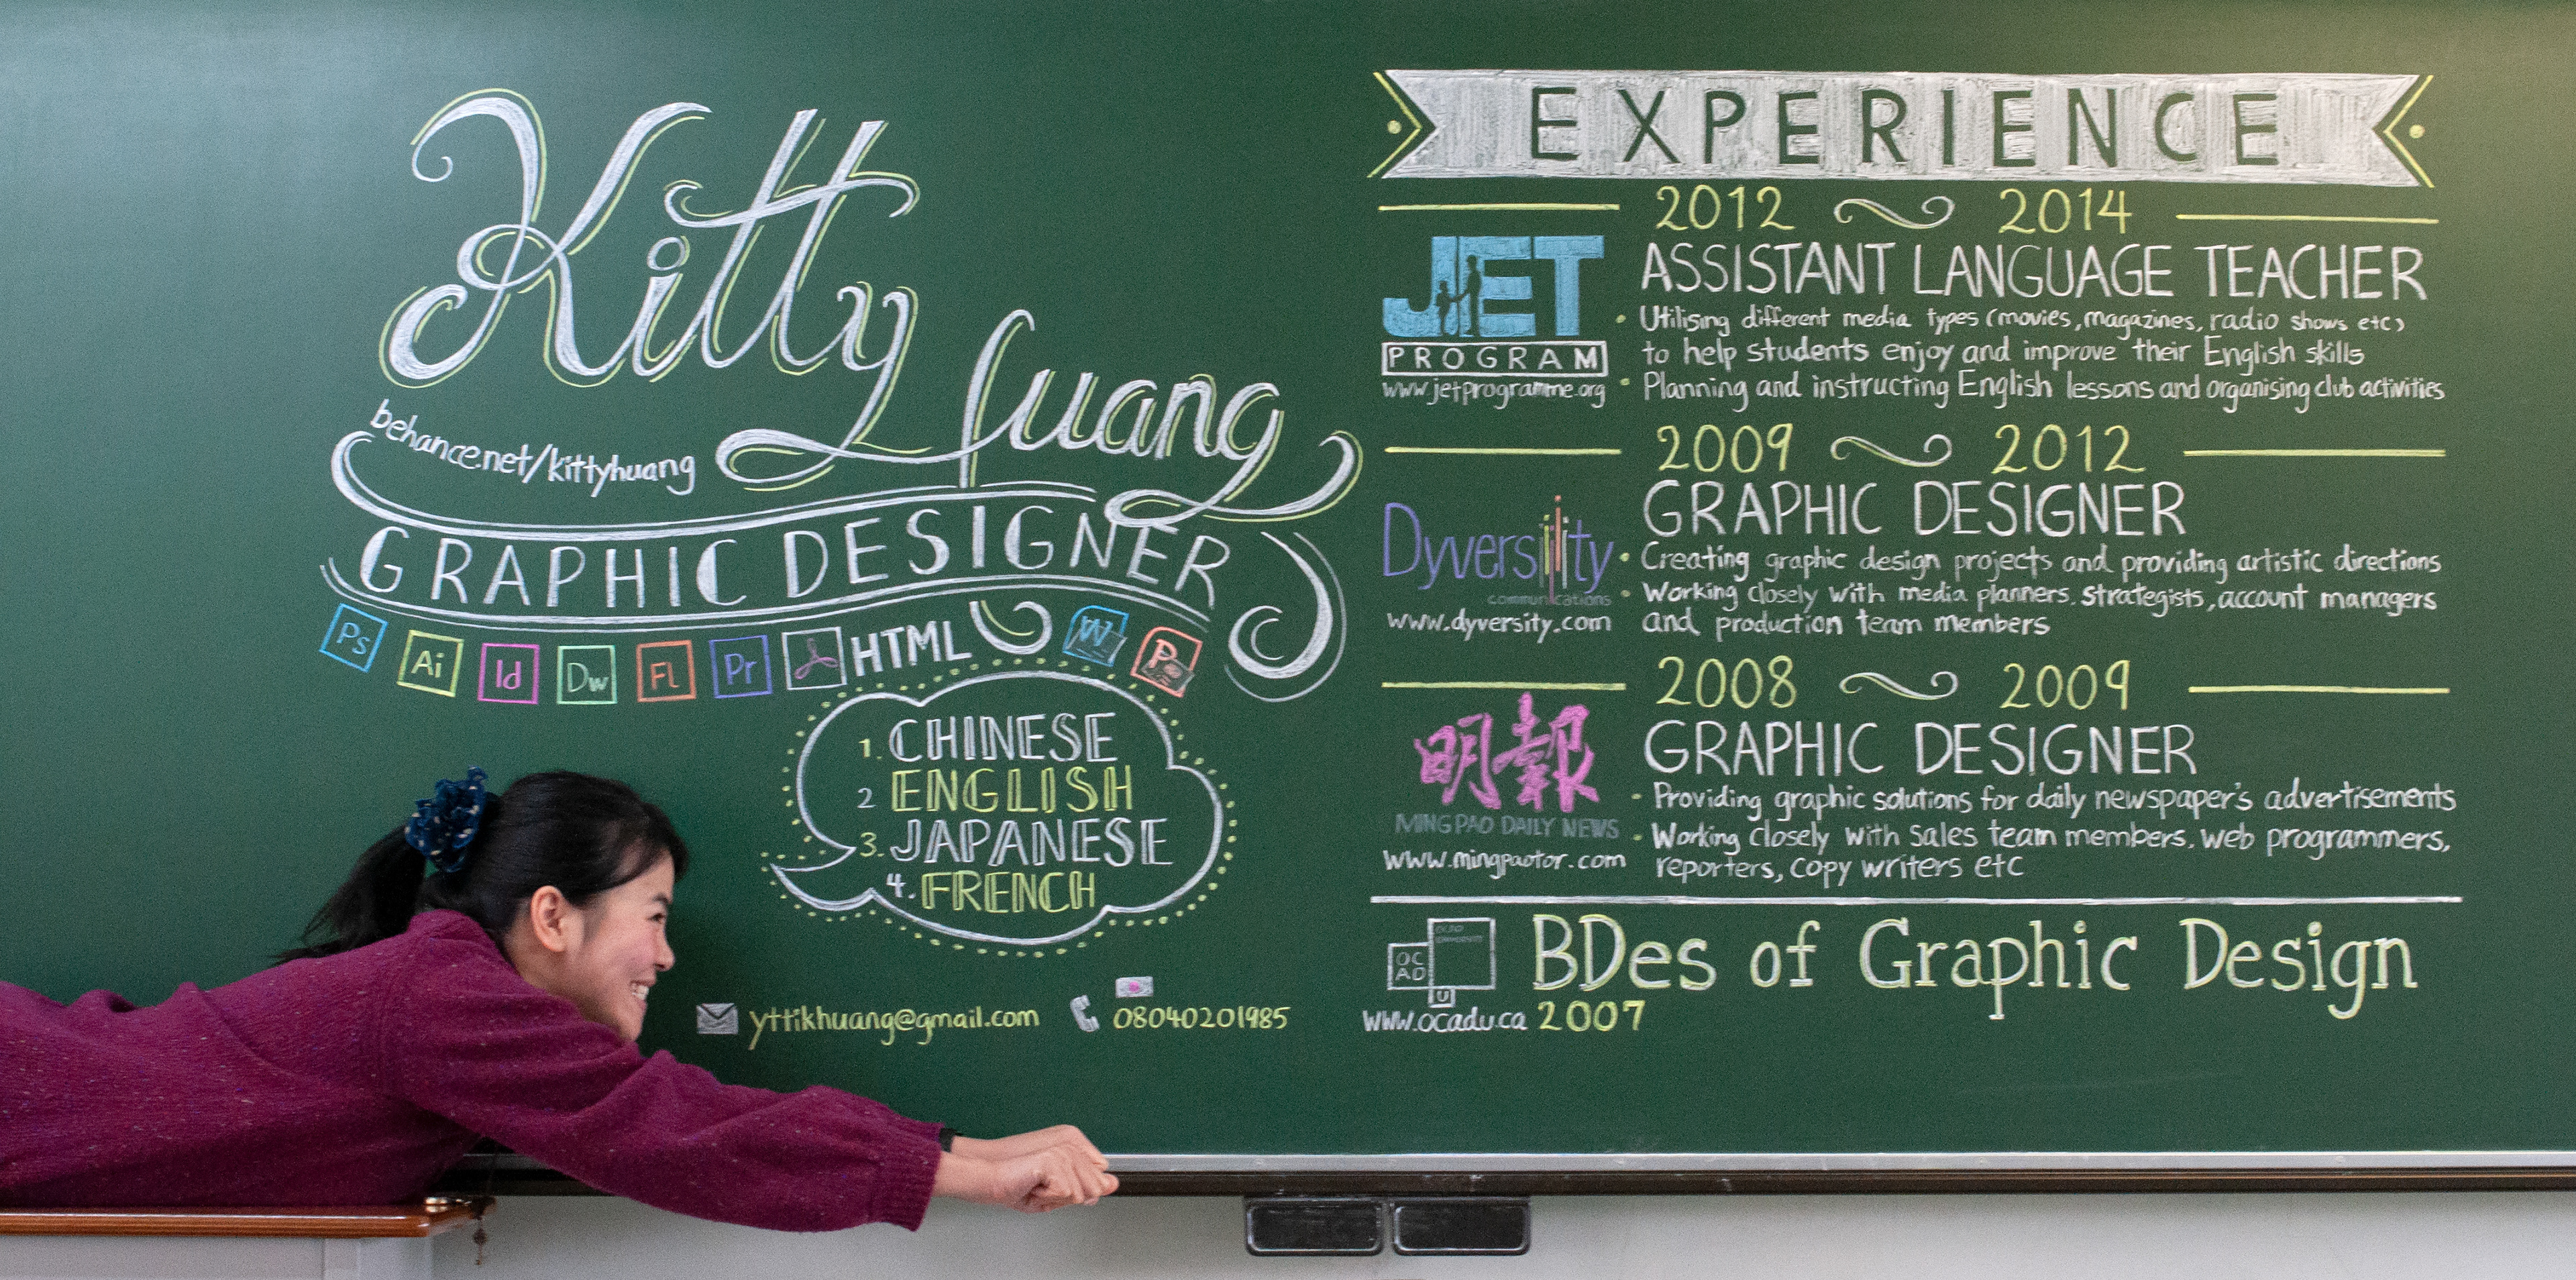 Kitty Huang
behance.net/kittyhuang
GRAPHIC DESIGNER
Ps Ai Id Dw Fl Pr HTML W P
1. CHINESE
2 ENGLISH
3. JAPANESE
4. FRENCH
yttikhuang@gmail.com
08040201985
EXPERIENCE
2012 ~ 2014
JET
PROGRAM
www.jetprogramme.org
ASSISTANT LANGUAGE TEACHER
• Utilising different media types (movies, magazines, radio shows etc)
to help students enjoy and improve their English skills
• Planning and instructing English lessons and organising club activities
2009 ~ 2012
Dyversity
communications
www.dyversity.com
GRAPHIC DESIGNER
• Creating graphic design projects and providing artistic directions
• Working closely with media planners, strategists, account managers
and production team members
2008 ~ 2009
明報
MING PAO DAILY NEWS
www.mingpaotor.com
GRAPHIC DESIGNER
- Providing graphic solutions for daily newspaper's advertisements
• Working closely with sales team members, web programmers,
reporters, copy writers etc
OC
AD
U
www.ocadu.ca
BDes of Graphic Design
2007